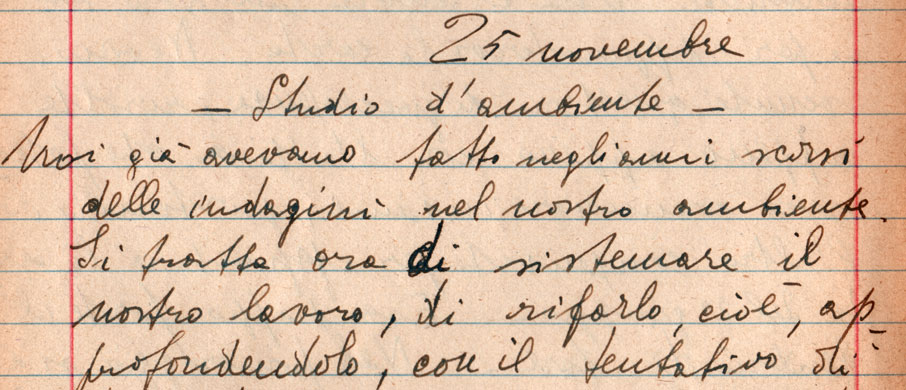 25 novembre
— Studio d'ambiente —
Noi già avevamo fatto negli anni scorsi
delle indagini nel nostro ambiente.
Si tratta ora di sistemare il
nostro lavoro, di rifarlo, cioè, ap-
profondendolo, con il tentativo di